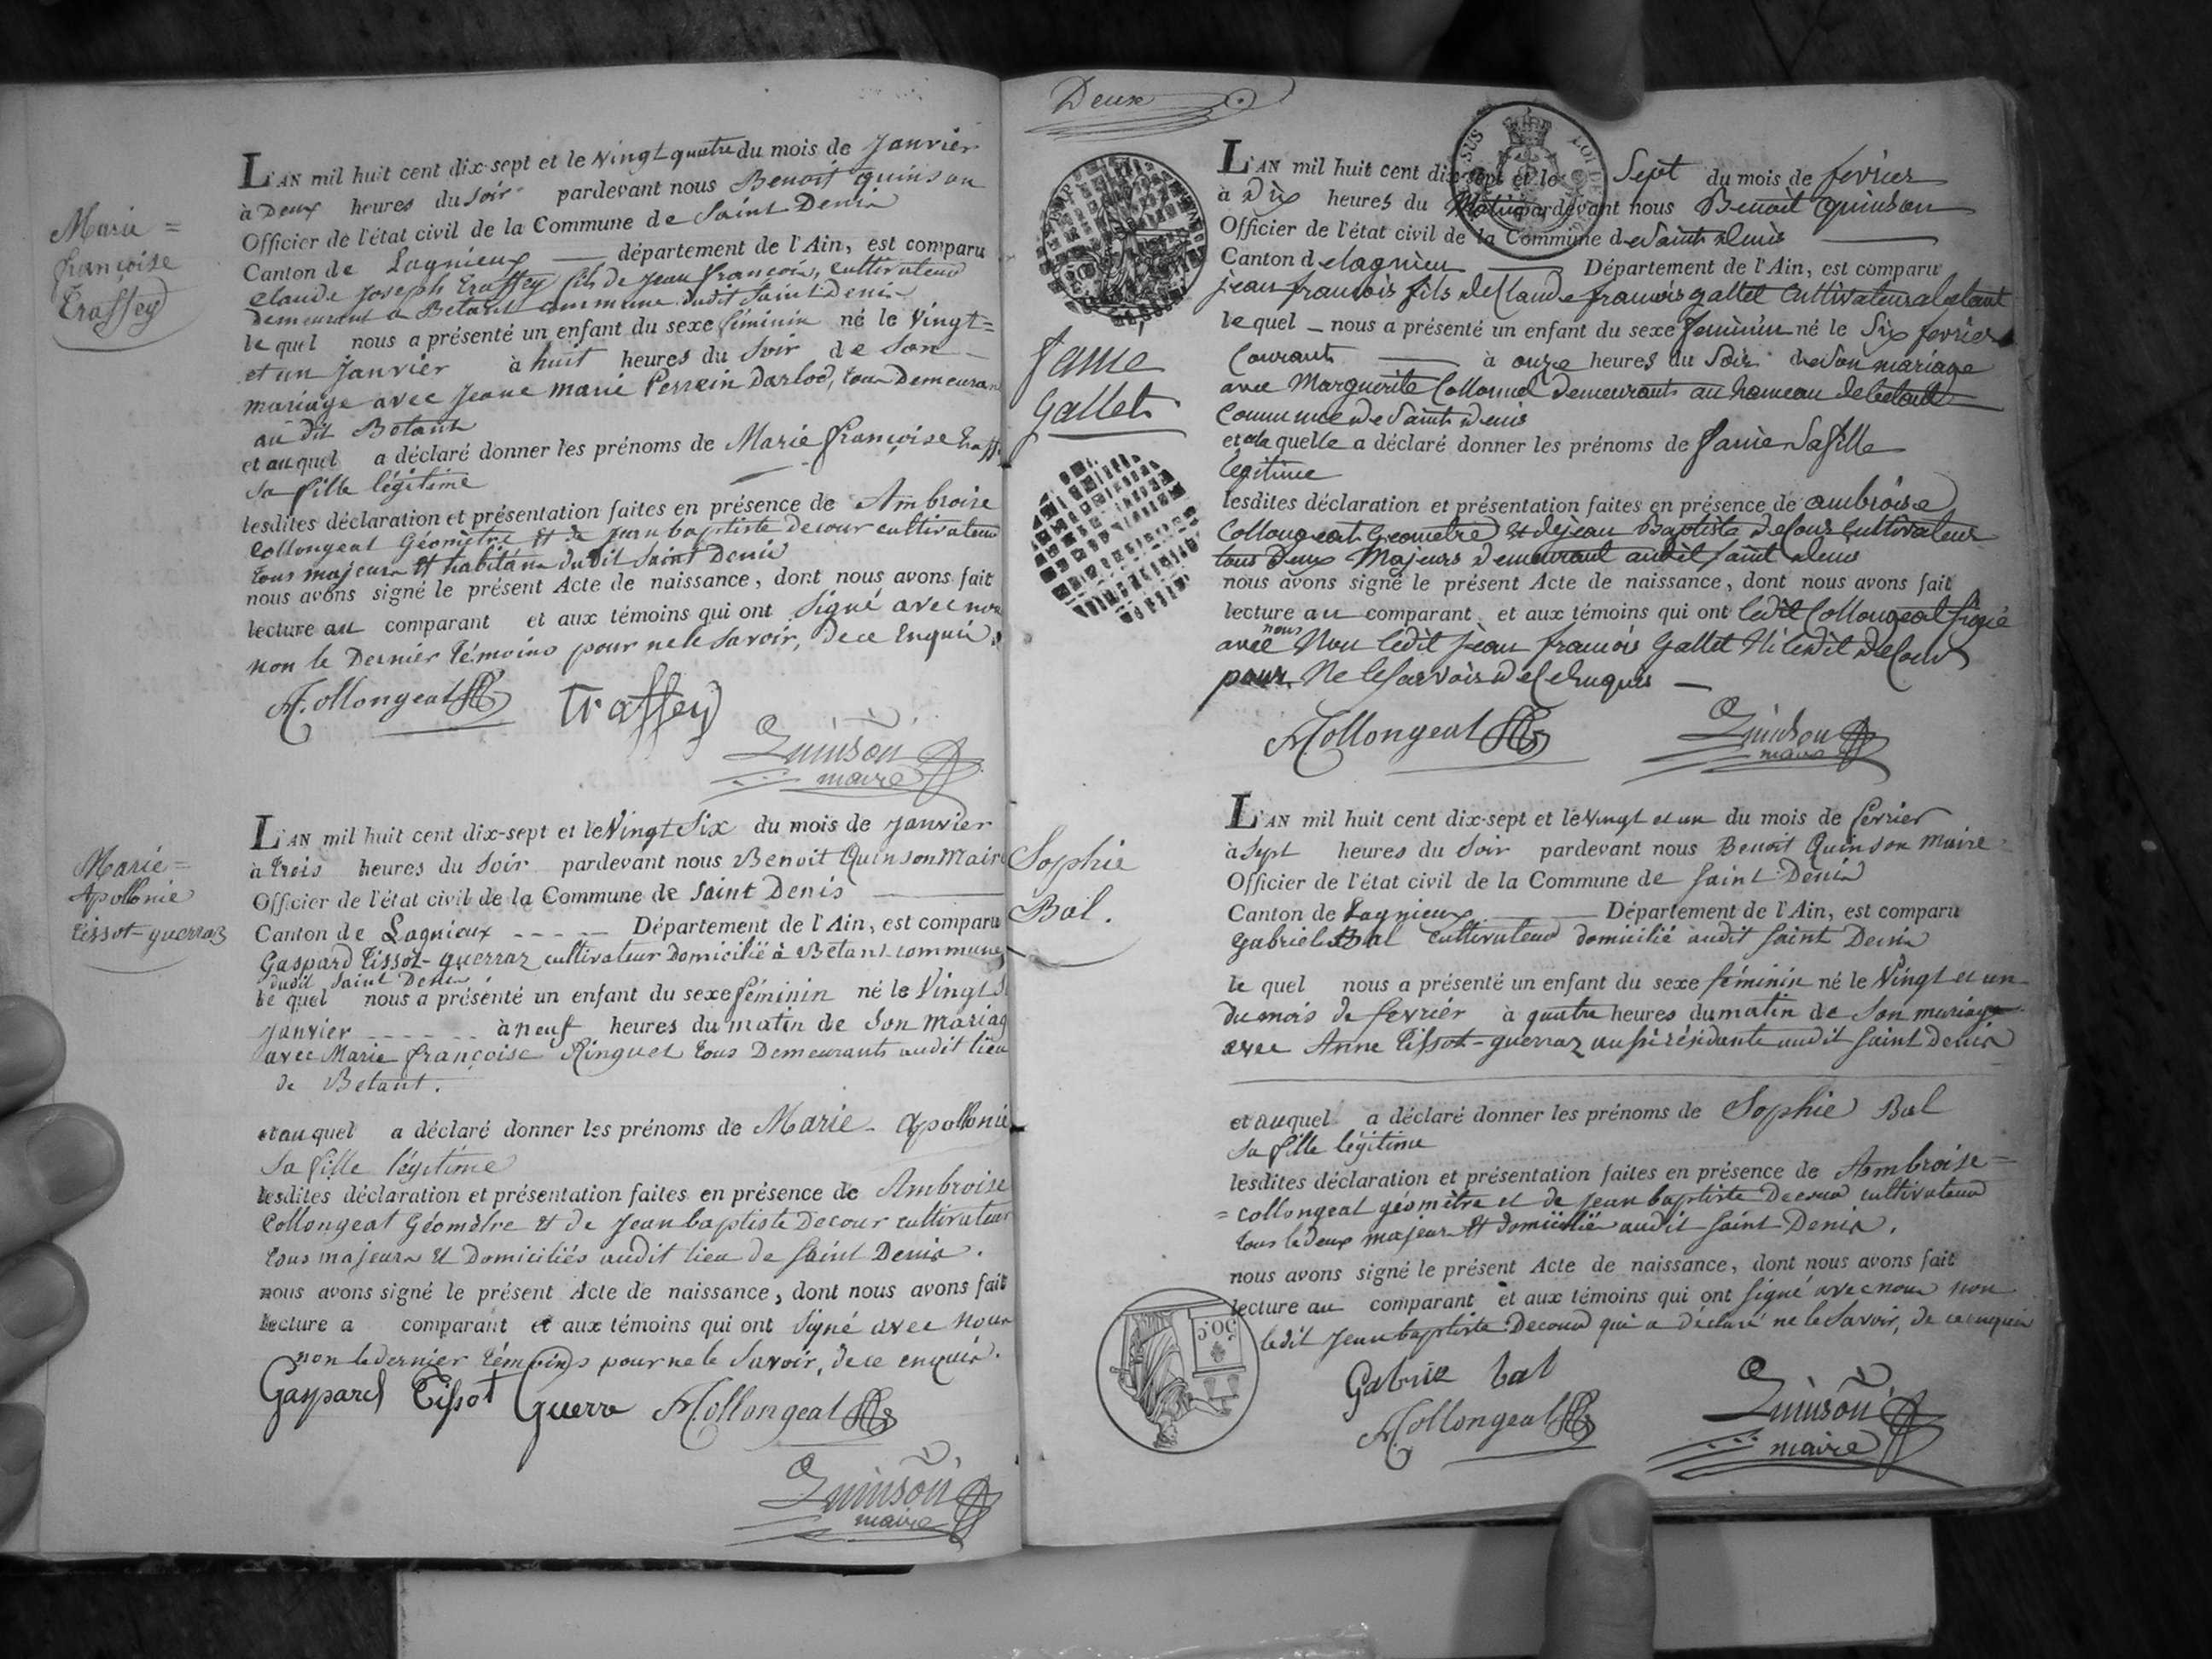 Marie =
françoise
Traffey
L'AN mil huit cent dix-sept et le Vingt quatre du mois de Janvier
à Deux heures du Soir pardevant nous Benoit Quinson
Officier de l'état civil de la Commune de Saint Denis
Canton de Lagnieux département de l'Ain, est comparu
Claude Joseph Traffey fils de Jean François, cultivateur
demeurant a Bétant commune dudit Saint Denis
le quel nous a présenté un enfant du sexe féminin né le Vingt=
et un Janvier à huit heures du Soir de Son
mariage avec Jeane Marie Perrein Darlod, tous Demeuran
au dit Bétant
et au quel a déclaré donner les prénoms de Marie françoise Traff
Sa fille légitime
lesdites déclaration et présentation faites en présence de Ambroise
Collongeat Géomètre et de Jean baptiste Decour cultivateur
tous majeurs et habitans dudit Saint Denis
nous avons signé le présent Acte de naissance, dont nous avons fait
lecture au comparant et aux témoins qui ont Signé avec nous
non le Dernier témoins pour ne le Savoir, de ce Enquis
A. Collongeat Traffey
Quinson
maire
Marie =
Apollonie
tissot-guerraz
L'AN mil huit cent dix-sept et le Vingt Six du mois de Janvier
à trois heures du Soir pardevant nous Benoit Quinson Maire
Officier de l'état civil de la Commune de Saint Denis
Canton de Lagnieux Département de l'Ain, est comparu
Gaspard Tissot-guerraz cultivateur Domicilié à Bétant commune
dudit Saint Denis
le quel nous a présenté un enfant du sexe féminin né le Vingt S
Janvier à neuf heures du matin de Son Mariag
avec Marie françoise Ringuet tous Demeurants audit lieu
de Bétant.
et au quel a déclaré donner les prénoms de Marie - Apollonie
Sa fille légitime
lesdites déclaration et présentation faites en présence de Ambroise
Collongeat Géomètre et de Jean baptiste Decour cultivateur
tous majeurs et Domiciliés audit lieu de Saint Denis.
nous avons signé le présent Acte de naissance, dont nous avons fait
lecture a comparant et aux témoins qui ont Signé avec nous
non le dernier témoins pour ne le Savoir, de ce enquis.
Gaspard Tissot Guerra A. Collongeat
Quinson
maire
Deux
fanie
Gallet
L'AN mil huit cent dix-sept et le Sept du mois de février
à Dix heures du Matin pardevant nous Benoit Quinson
Officier de l'état civil de la Commune de Saint Denis
Canton de lagnieu Département de l'Ain, est comparu
jean francois fils de Claude francois gallet Cultivateur a betant
le quel nous a présenté un enfant du sexe feminin né le Six fevrier
Courant à onze heures du Soir de Son mariage
avec Marguerite Collonnel demeurants au hameau de betant
Commune de Saint Denis
et a la quelle a déclaré donner les prénoms de fanie Sa fille
legitime
lesdites déclaration et présentation faites en présence de ambroise
Collongeat Geometre et de jean Baptiste deCour Cultivateur
tous Deux Majeurs demeurant audit Saint Denis
nous avons signé le présent Acte de naissance, dont nous avons fait
lecture au comparant et aux témoins qui ont ledit Collongeat signé
avec nous Non ledit jean francois Gallet Ni ledit deCour
pour Ne le Savoir de Ce Enquis
A. Collongeat Quinson
maire
Sophie
Bal.
L'AN mil huit cent dix-sept et le Vingt et un du mois de fevrier
à Sept heures du Soir pardevant nous Benoit Quinson Maire
Officier de l'état civil de la Commune de Saint Denis
Canton de Lagnieux Département de l'Ain, est comparu
Gabriel Bal Cultivateur domicilié audit Saint Denis
le quel nous a présenté un enfant du sexe féminin né le Vingt et un
du mois de fevrier à quatre heures du matin de Son mariage
avec Anne Tissot-guerraz aussi résidante audit Saint Denis
et auquel a déclaré donner les prénoms de Sophie Bal
Sa fille légitime
lesdites déclaration et présentation faites en présence de Ambroise =
= collongeat géomètre et de Jean baptiste Decour cultivateur
tous le deux majeurs et domiciliés audit Saint Denis.
nous avons signé le présent Acte de naissance, dont nous avons fait
lecture au comparant et aux témoins qui ont Signé avec nous non
ledit Jean baptiste Decour qui a déclaré ne le Savoir, de ce enquis
50.C
Gabrie bal
A. Collongeat Quinson
maire